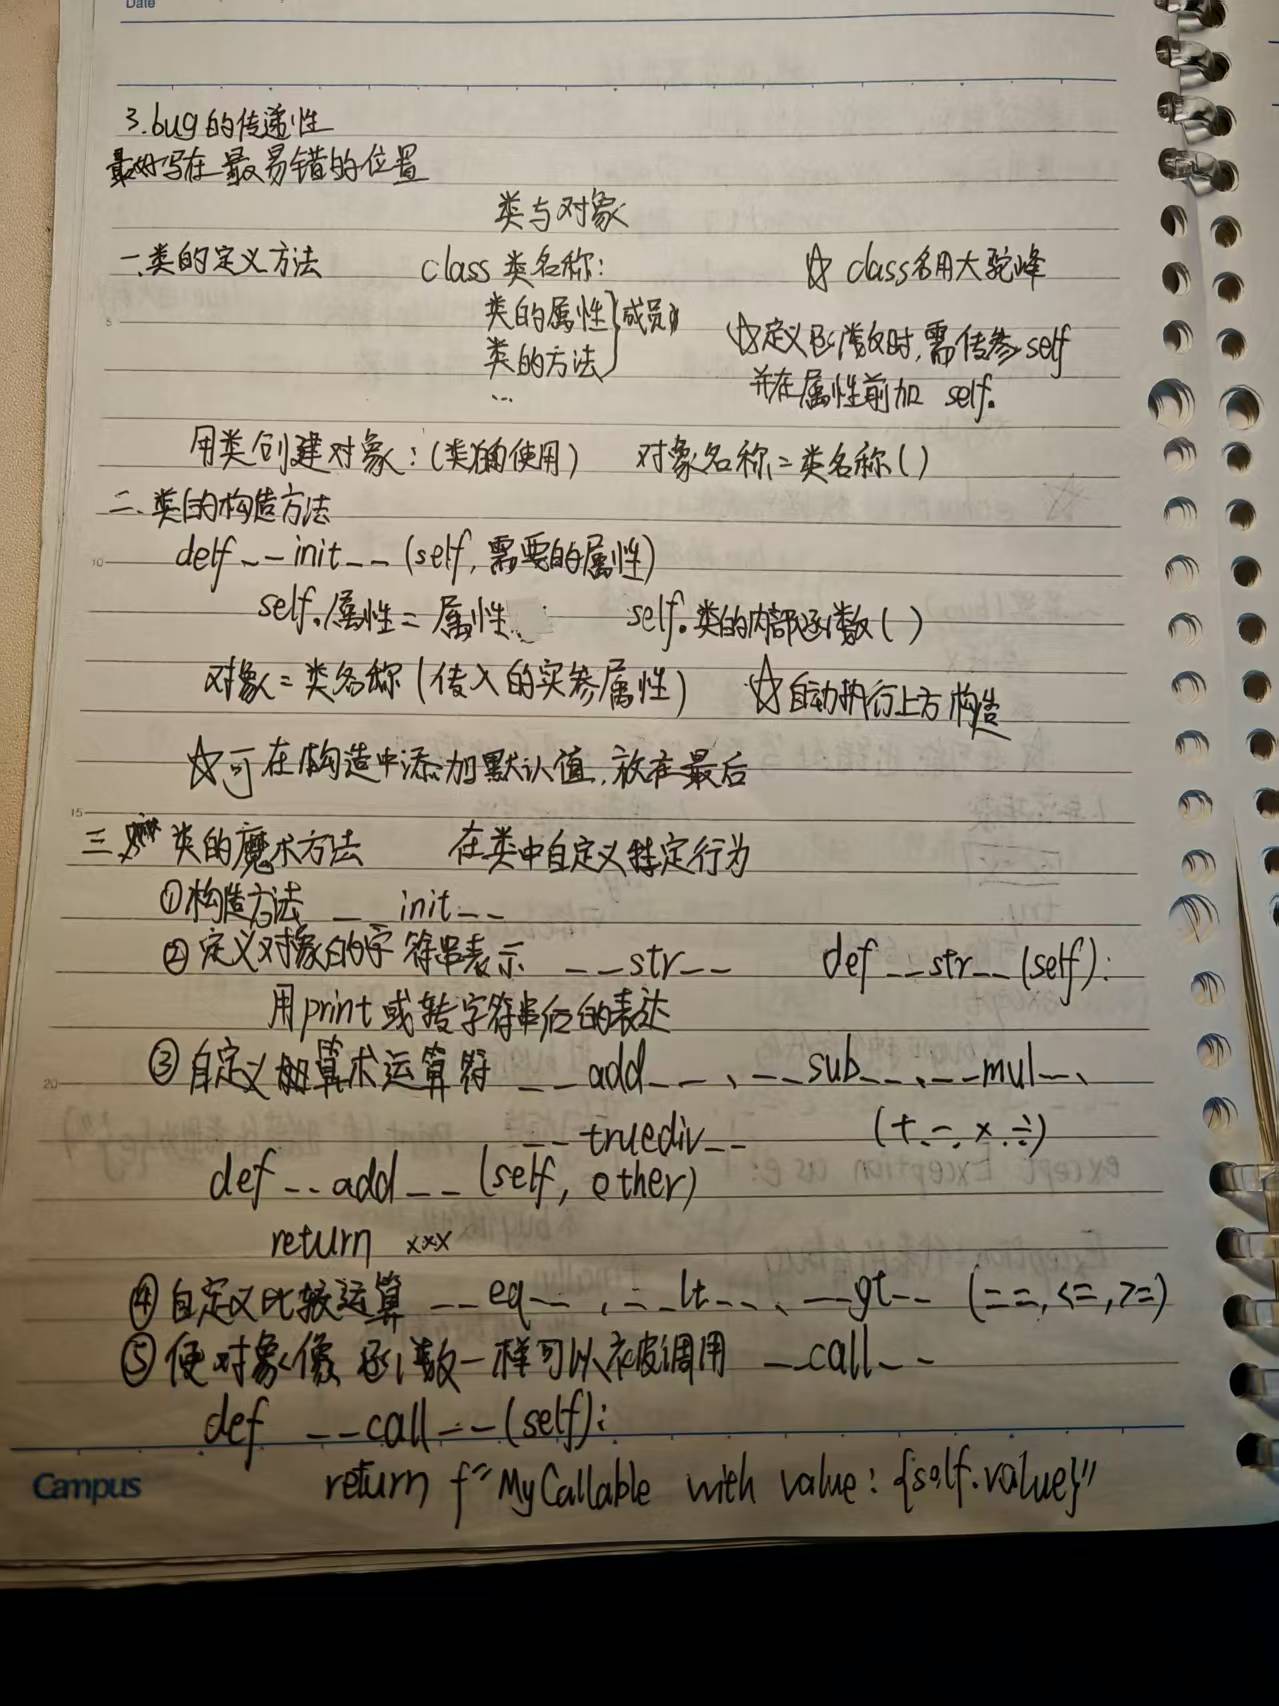 Date
3.bug的传递性
最好写在最易错的位置
类与对象
一、类的定义方法 class 类名称: ☆ class名用大驼峰
类的属性 } 成员
5 类的方法 ☆定义函数时,需传参self
... 并在属性前加 self.
用类创建对象:(类的使用) 对象名称=类名称()
二、类的构造方法
10 def __init__(self,需要的属性)
self.属性=属性 self.类的内部函数()
对象=类名称(传入的实参属性) ☆自动执行上方构造
☆可在构造中添加默认值,放在最后
15
三、类的魔术方法 在类中自定义特定行为
①构造方法 __init__
②定义对象的字符串表示 __str__ def __str__(self):
用print或转字符串后的表达
③自定义算术运算符 __add__、__sub__、__mul__、
20
__truediv__ (+.-.×.÷)
def __add__(self, other)
return xxx
④自定义比较运算 __eq__,__lt__、__gt__ (==,<=,>=)
⑤使对象像函数一样可以被调用 __call__
def __call__(self):
Campus return f"MyCallable with value:{self.value}"